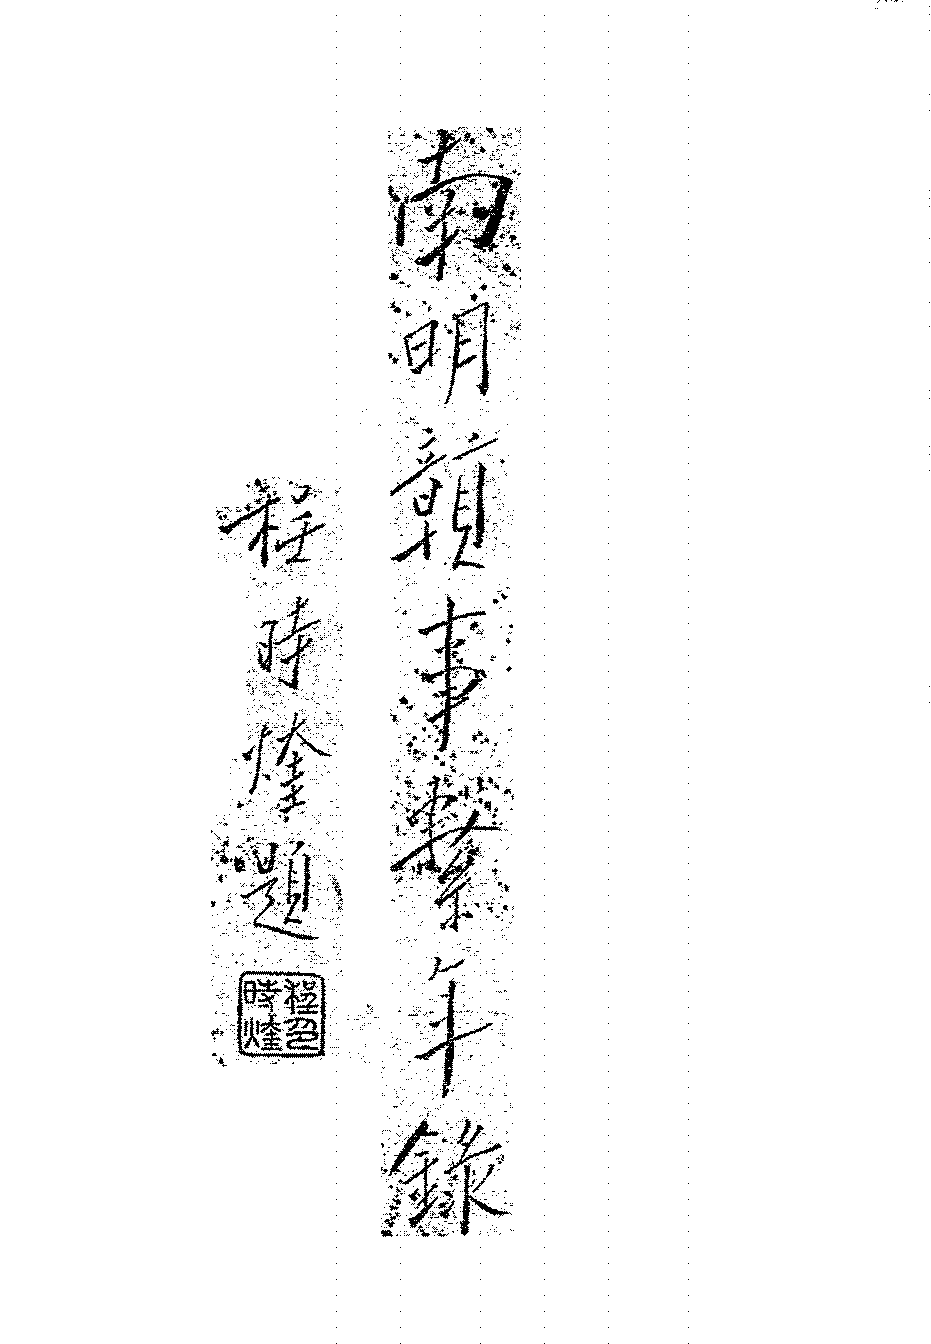 南明贑事繫年錄
程時煃題
程印
時煃